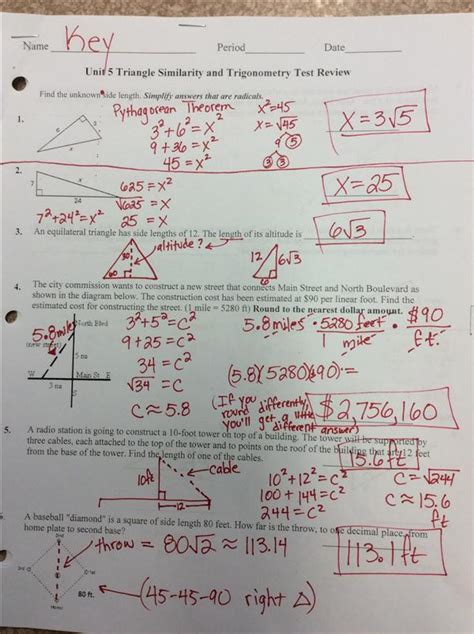 Name Key Period Date
Unit 5 Triangle Similarity and Trigonometry Test Review
Find the unknown side length. Simplify answers that are radicals.
1.
6
3
x
Pythagorean Theorem
3²+6²=x²
9+36=x²
45=x²
x²=45
x=√45
9 5
3 3
x=3√5
2.
7
x
24
7²+24²=x²
625=x²
√625=x
25=x
x=25
3. An equilateral triangle has side lengths of 12. The length of its altitude is 6√3
30°
60°
altitude?
12
6√3
6
4. The city commission wants to construct a new street that connects Main Street and North Boulevard as
shown in the diagram below. The construction cost has been estimated at $90 per linear foot. Find the
estimated cost for constructing the street. (1 mile = 5280 ft) Round to the nearest dollar amount.
5.8 miles
(new street)
North Blvd
5 mi
W
Main St E
3 mi
S
3²+5²=c²
9+25=c²
34=c²
√34=c
c≈5.8
5.8 miles · 5280 feet · $90
1 mile ft.
(5.8)(5280)(90)=
(If you
round differently,
you'll get a little
different answer)
$2,756,160
5. A radio station is going to construct a 10-foot tower on top of a building. The tower will be supported by
three cables, each attached to the top of the tower and to points on the roof of the building that are 12 feet
from the base of the tower. Find the length of one of the cables.
15.6 ft
10ft
cable
12
10²+12²=c²
100+144=c²
244=c²
c=√244
c≈15.6
ft
A baseball "diamond" is a square of side length 80 feet. How far is the throw, to one decimal place, from
home plate to second base?
2nd
3rd
1st
Home
80 ft.
throw = 80√2 ≈ 113.14
(45-45-90 right △)
113.1 ft